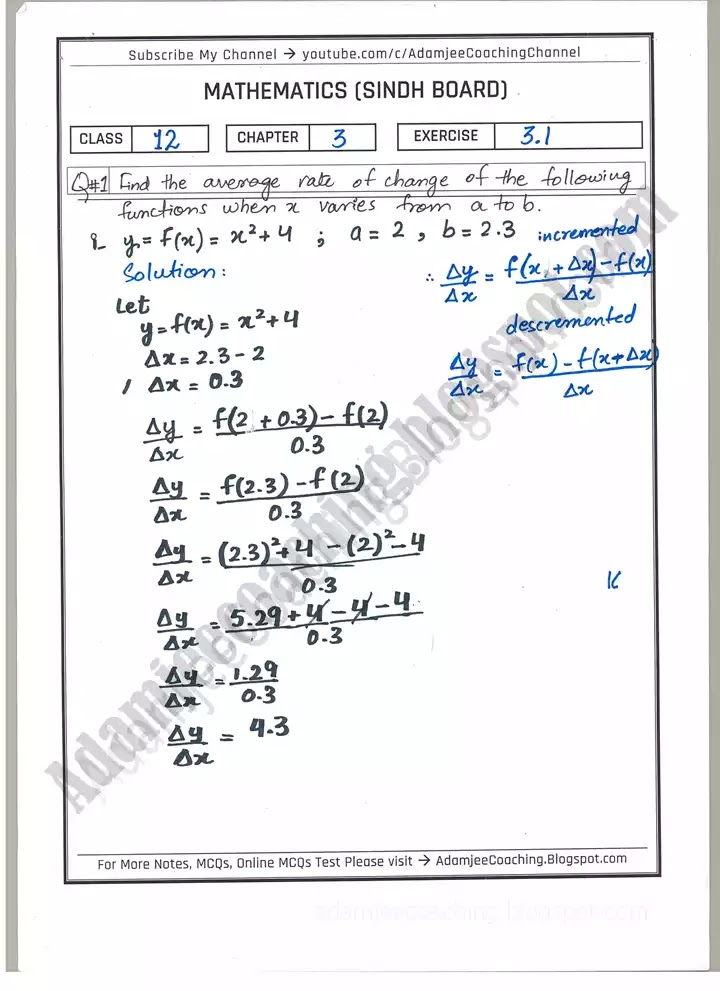 Subscribe My Channel → youtube.com/c/AdamjeeCoachingChannel
MATHEMATICS (SINDH BOARD)
CLASS 12 CHAPTER 3 EXERCISE 3.1
Q#1 Find the average rate of change of the following
functions when x varies from a to b.
i- y = f(x) = x² + 4 ; a = 2 , b = 2.3
Solution:
Let
y = f(x) = x² + 4
Δx = 2.3 - 2
Δx = 0.3
Δy/Δx = f(2 + 0.3) - f(2) / 0.3
Δy/Δx = f(2.3) - f(2) / 0.3
Δy/Δx = (2.3)² + 4 - (2)² - 4 / 0.3
Δy/Δx = 5.29 + 4 - 4 - 4 / 0.3
Δy/Δx = 1.29 / 0.3
Δy/Δx = 4.3
incremented
∴ Δy/Δx = f(x + Δx) - f(x) / Δx
descremented
Δy/Δx = f(x) - f(x + Δx) / Δx
Adamjeecoaching.blogspot.com
For More Notes, MCQs, Online MCQs Test Please visit → AdamjeeCoaching.Blogspot.com
adamjeecoaching.blogspot.com